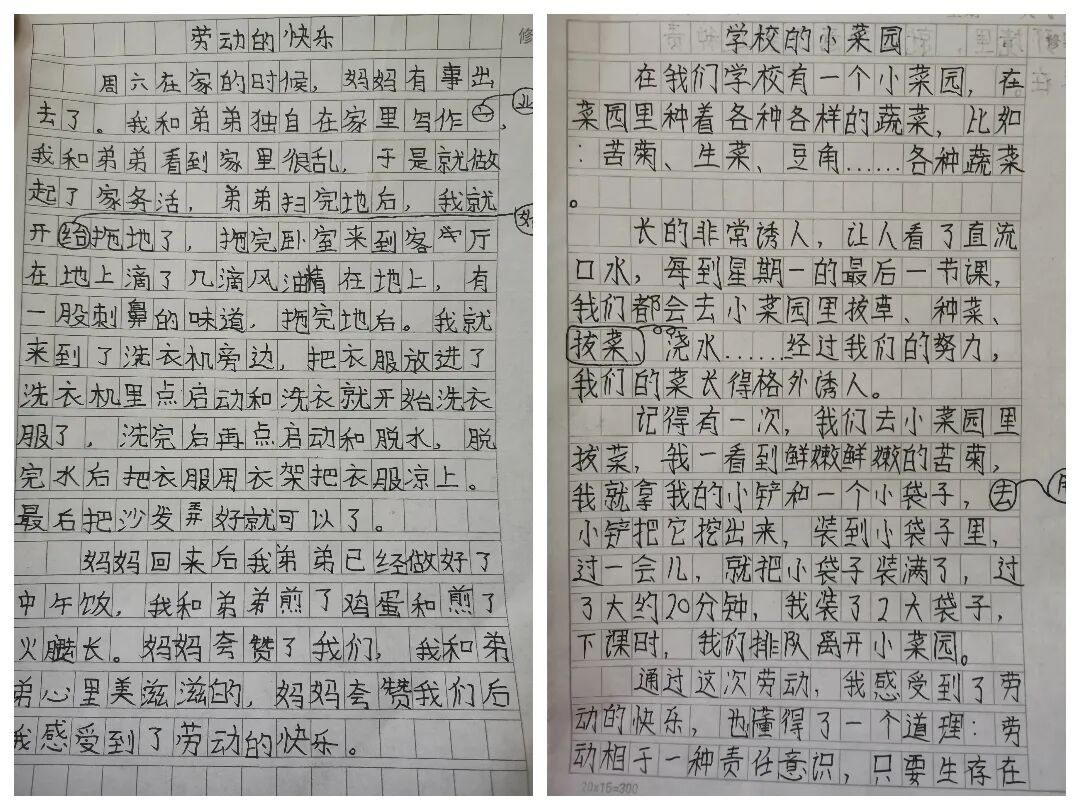 劳动的快乐
周六在家的时候，妈妈有事出
去了。我和弟弟独自在家里写作业，
我和弟弟看到家里很乱，于是就做
起了家务活，弟弟扫完地后，我就
开始拖地了，拖完卧室来到客厅
在地上滴了几滴风油精在地上，有
一股刺鼻的味道，拖完地后。我就
来到了洗衣机旁边，把衣服放进了
洗衣机里点启动和洗衣就开始洗衣
服了，洗完后再点启动和脱水，脱
完水后把衣服用衣架把衣服凉上。
最后把沙发弄好就可以了。
妈妈回来后我弟弟已经做好了
中午饭，我和弟弟煎了鸡蛋和煎了
火腿长。妈妈夸赞了我们，我和弟
弟心里美滋滋的，妈妈夸赞我们后
我感受到了劳动的快乐。
学校的小菜园
在我们学校有一个小菜园，在
菜园里种着各种各样的蔬菜，比如
：苦菊、生菜、豆角……各种蔬菜
。
长的非常诱人，让人看了直流
口水，每到星期一的最后一节课，
我们都会去小菜园里拔草、种菜、
拔菜、浇水……经过我们的努力，
我们的菜长得格外诱人。
记得有一次，我们去小菜园里
拔菜，我一看到鲜嫩鲜嫩的苦菊，
我就拿我的小铲和一个小袋子，去用
小铲把它挖出来，装到小袋子里，
过一会儿，就把小袋子装满了，过
了大约20分钟，我装了2大袋子，
下课时，我们排队离开小菜园。
通过这次劳动，我感受到了劳
动的快乐，也懂得了一个道理：劳
动相于一种责任意识，只要生存在
20x15=300